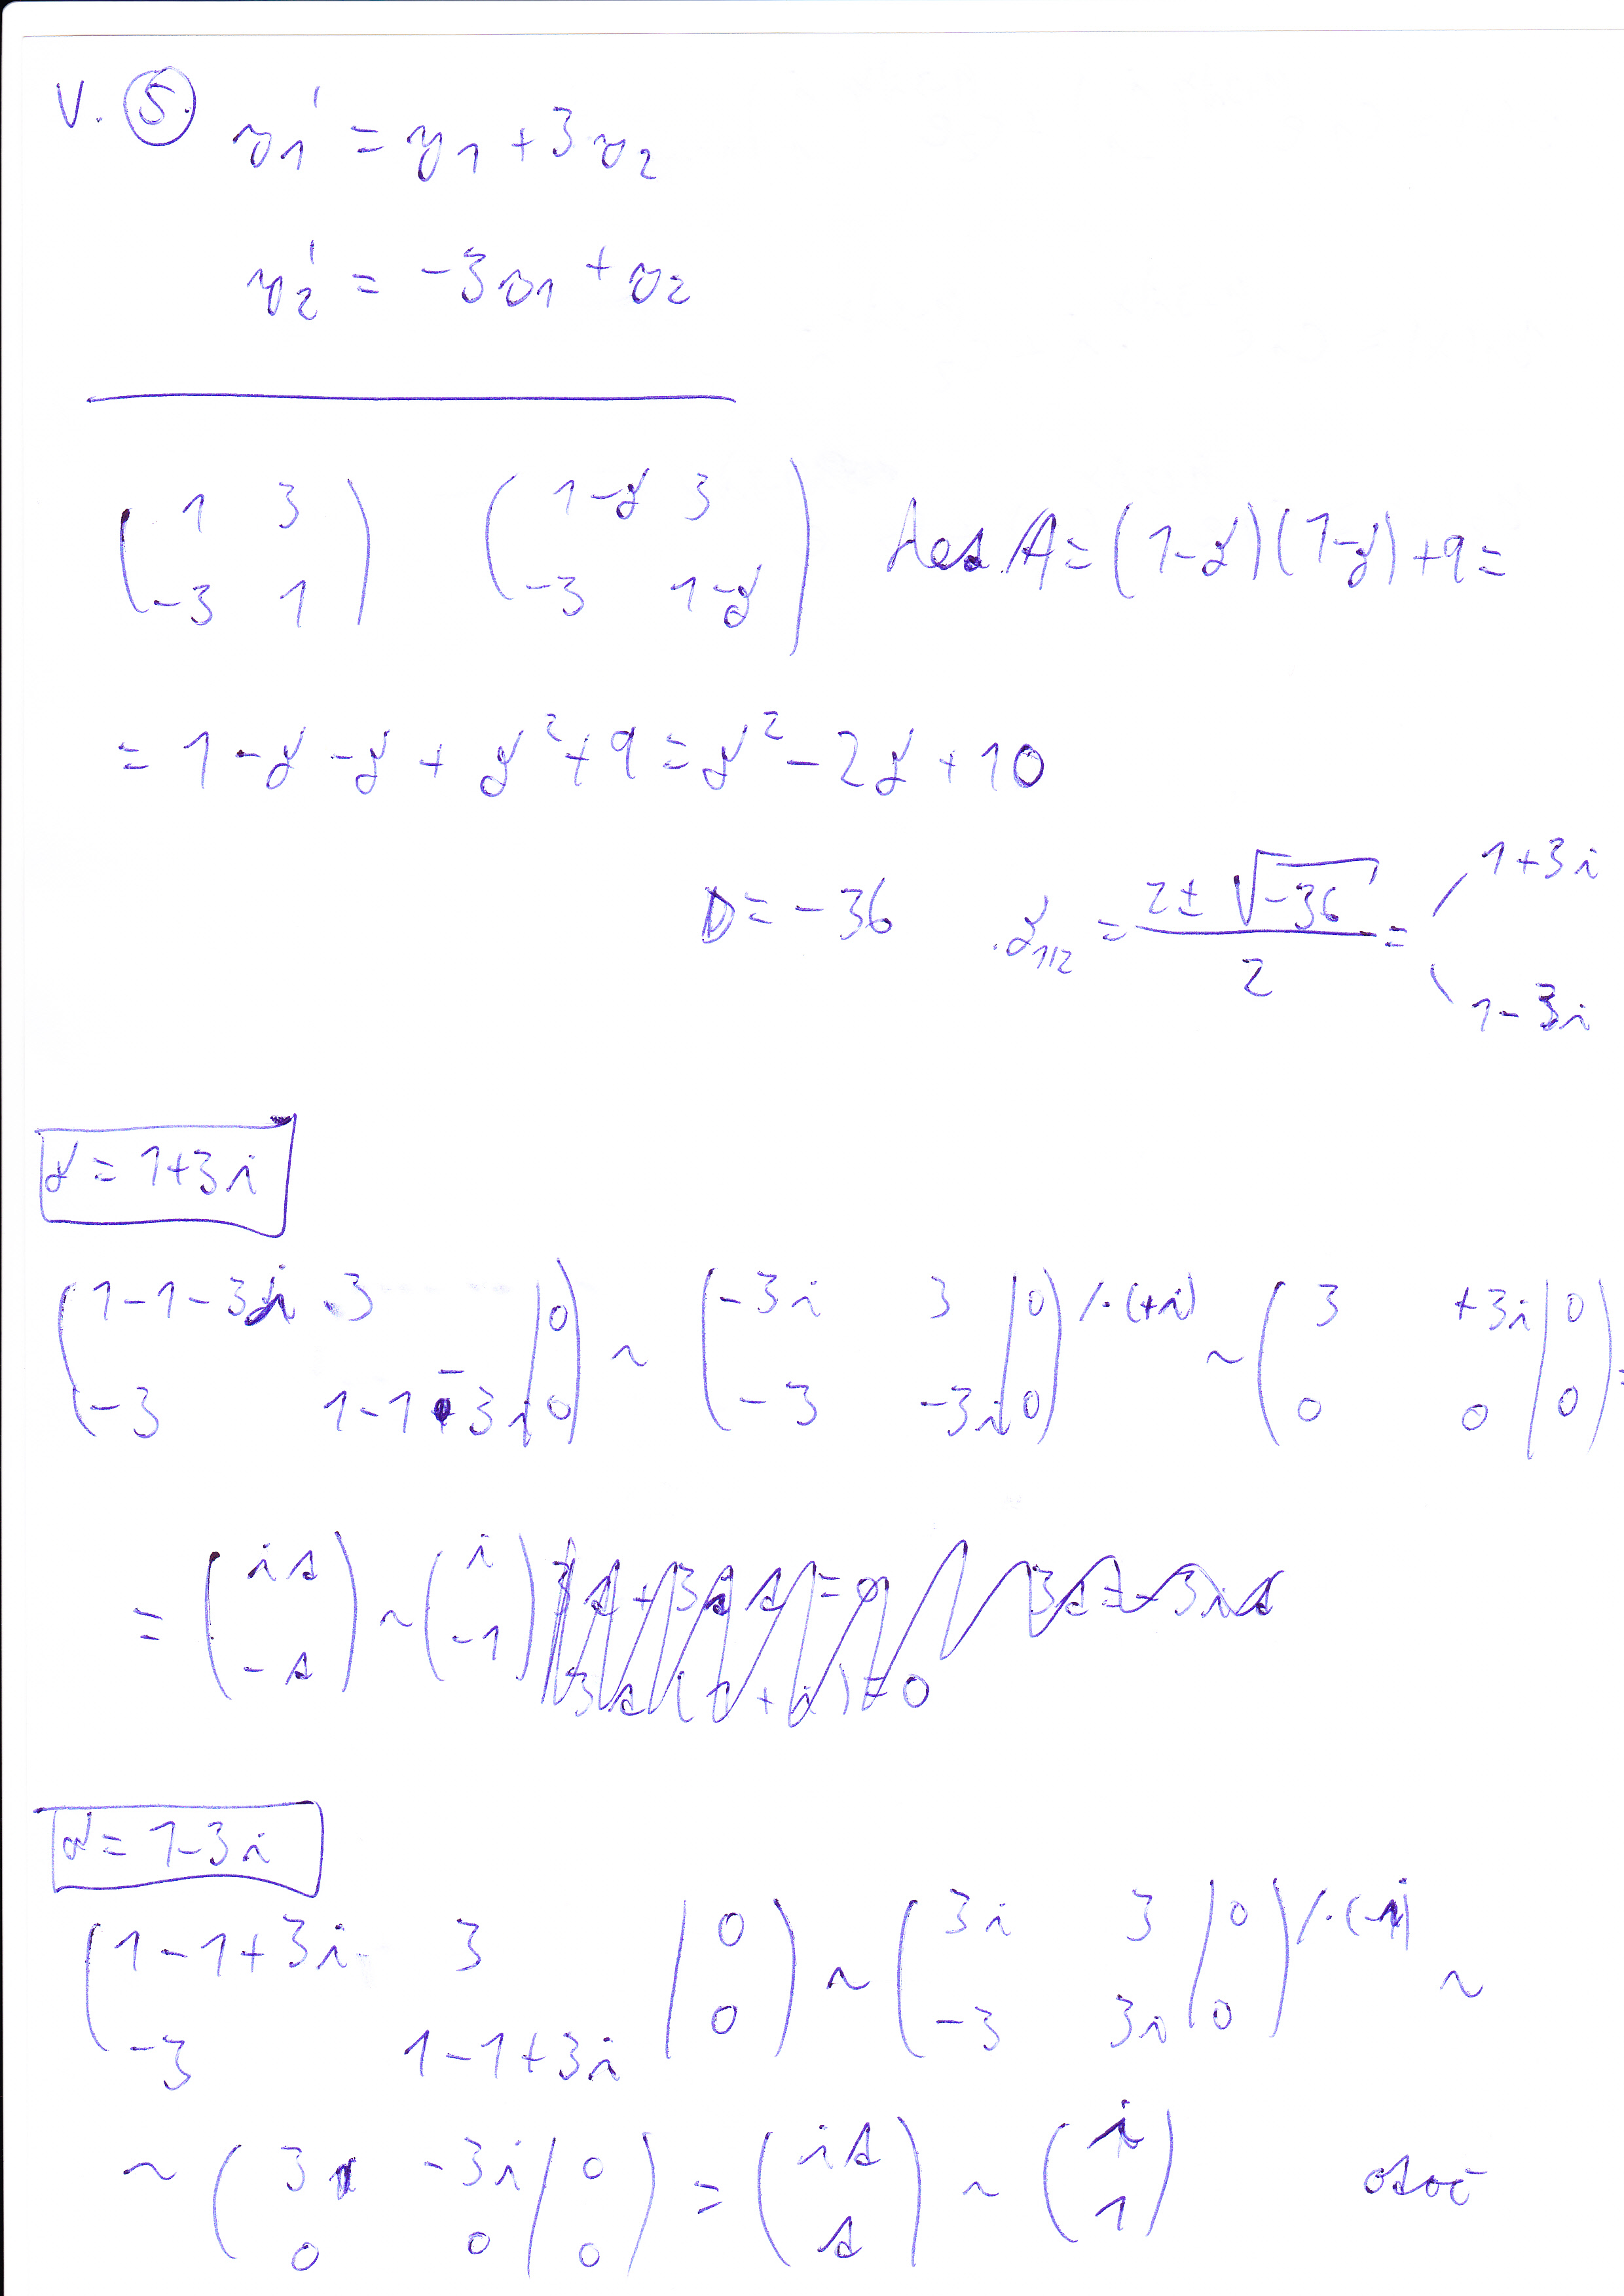 V. (5.) y1' = y1 + 3y2
y2' = -3y1 + y2
( 1 3 ; -3 1 ) ( 1-λ 3 ; -3 1-λ ) det A = (1-λ)(1-λ)+9 =
= 1 - λ - λ + λ² + 9 = λ² - 2λ + 10
D = -36 λ1/2 = (2 ± √-36)/2 = 1+3i
1-3i
λ = 1+3i
( 1-1-3i 3 | 0 ; -3 1-1-3i | 0 ) ~ ( -3i 3 | 0 ; -3 -3i | 0 ) /·(+i) ~ ( 3 +3i | 0 ; 0 0 | 0 ) =
= ( is ; -s ) ~ ( i ; -1 )
λ = 1-3i
( 1-1+3i 3 | 0 ; -3 1-1+3i | 0 ) ~ ( 3i 3 | 0 ; -3 3i | 0 ) /·(-i) ~
~ ( 3 -3i | 0 ; 0 0 | 0 ) = ( is ; s ) ~ ( i ; 1 ) otoč